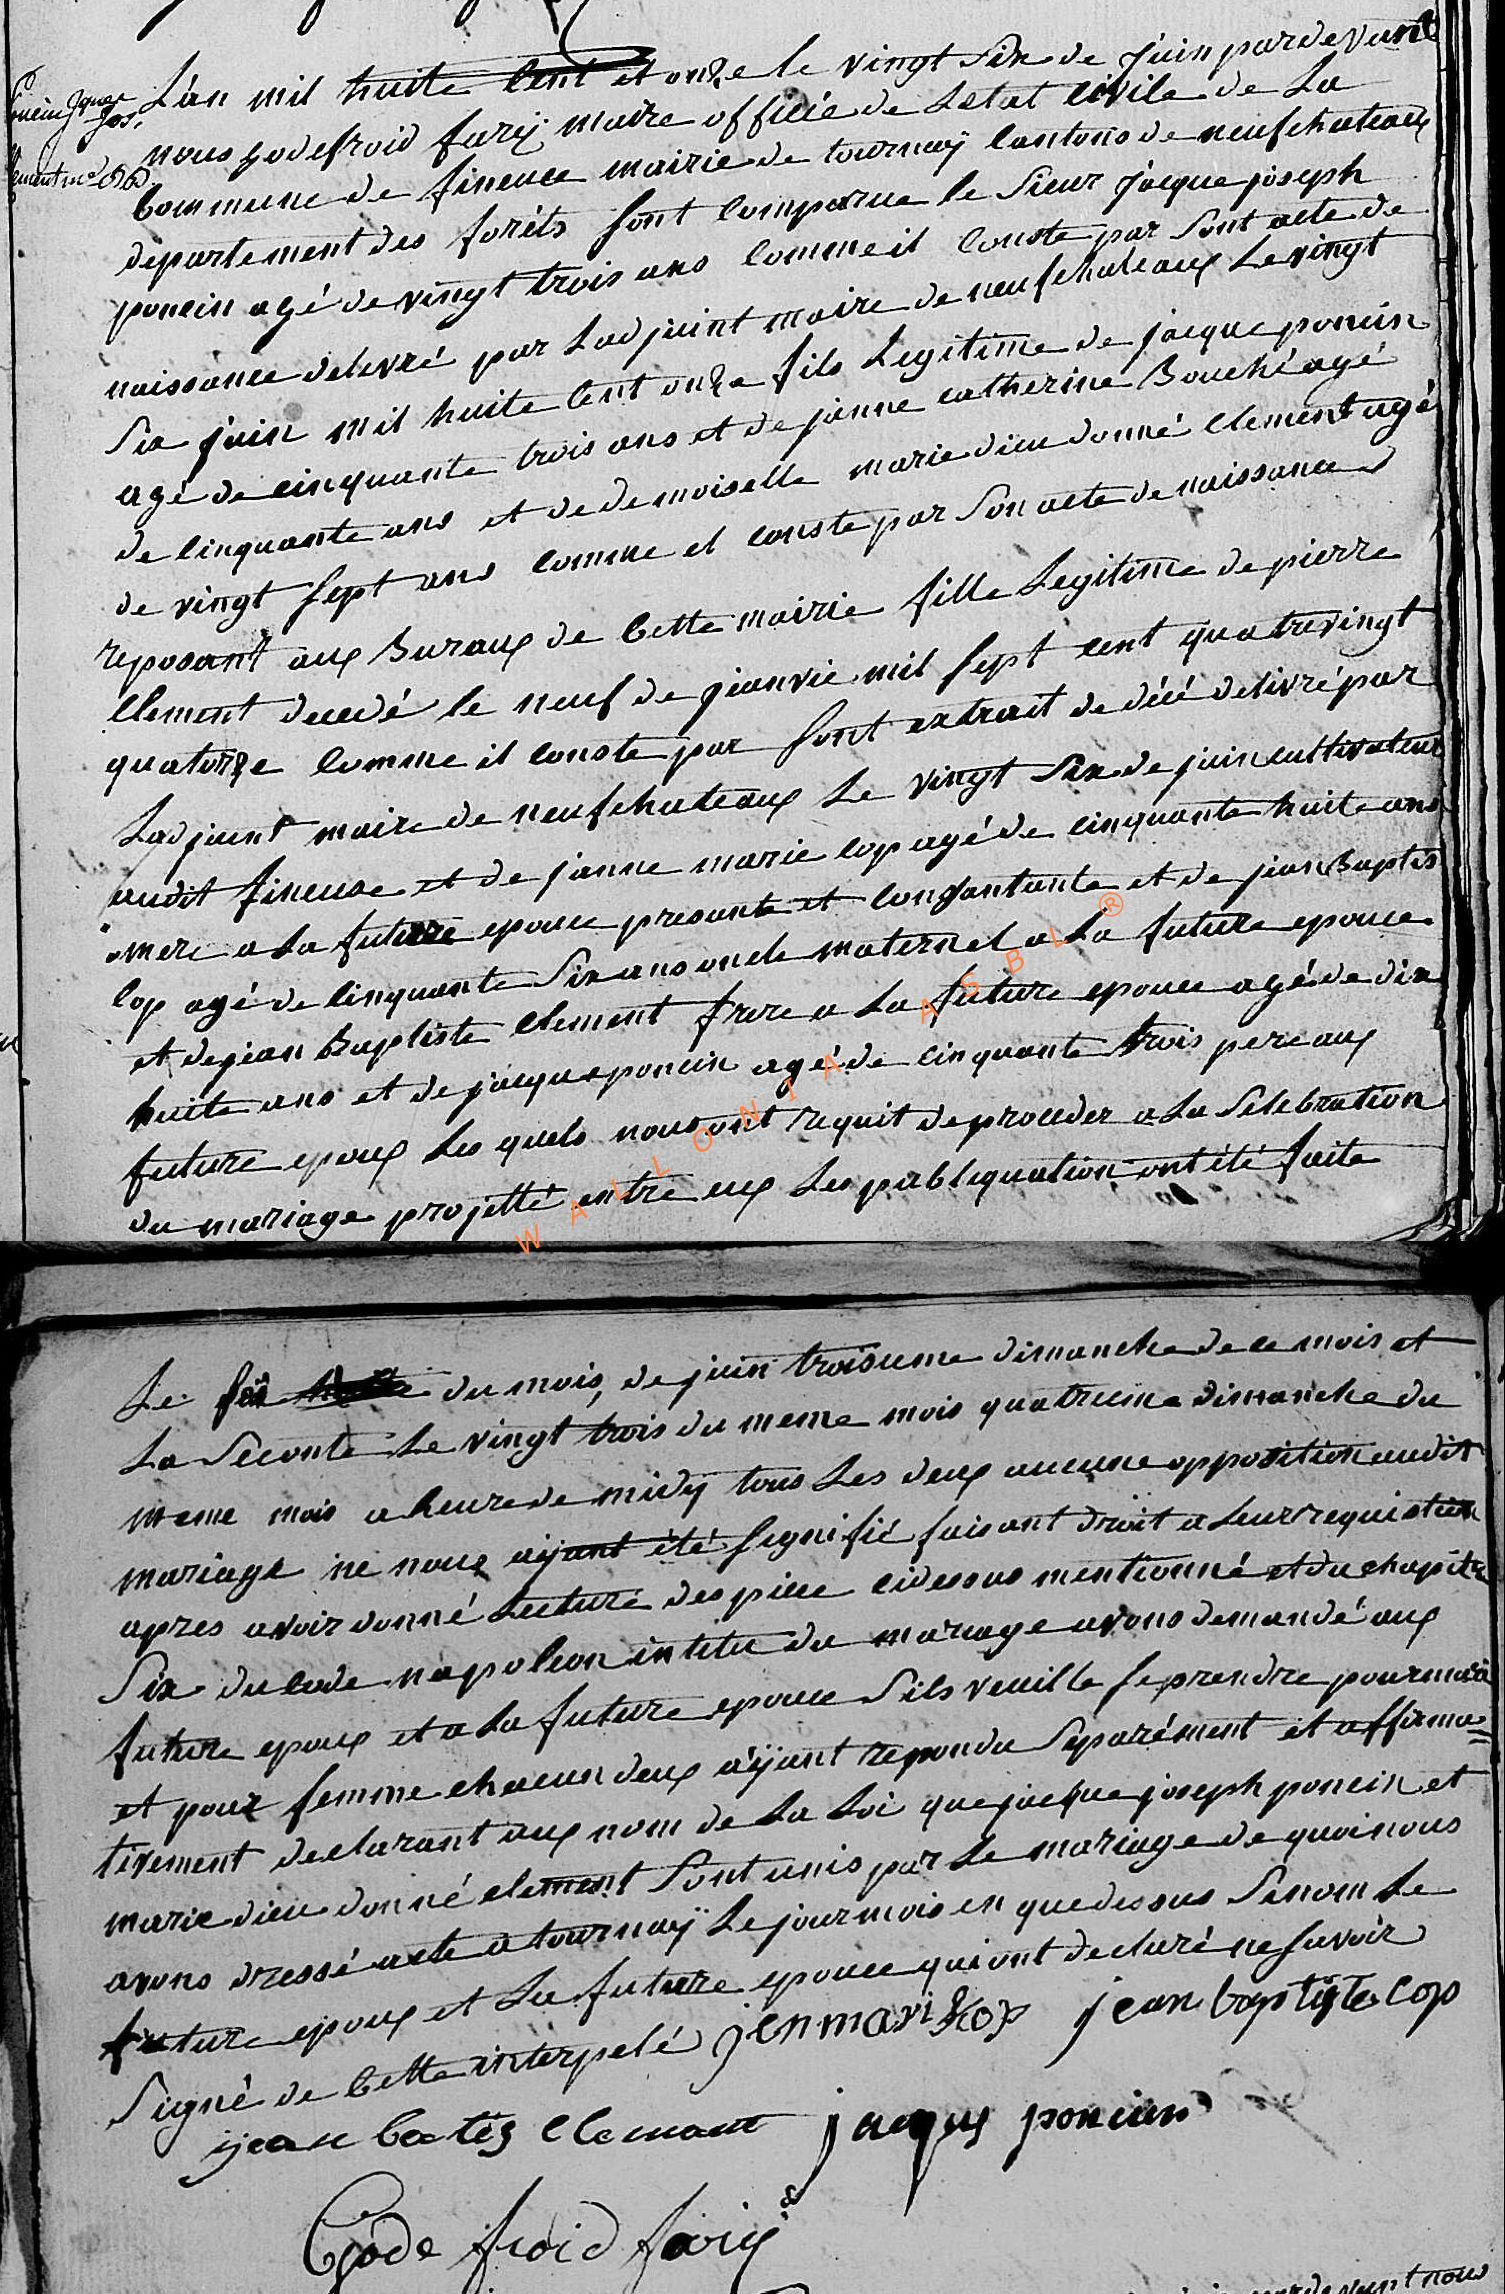 Poncin Jques
Jos.
L'an mil huite cent et onze le vingt Six de juin pardevant
nous godefroid farÿ maire officié de Letat civile de La
Clement me dieud.
Commune de fineuce mairie de tournaÿ Cantons de neufchateaux
departement des foréts sont comparue le Sieur jacque joseph
poncin agé de vingt trois ans comme il conste par sont acte de
naissance delevré par Ladjoint maire de neufchateaux Le vingt
Six juin mil huite cent onze fils Legitime de jacque poncin
agé de cinquante trois ans et de janne catherine Bouché agé
de cinquante ans et de demoiselle marie dieu donné clement agé
de vingt sept ans comme el conste par son acte de naissance
reposant aux Buraux de Cette mairie fille Legitime de pierre
Clement decedé le neuf de jeanvie mil sept cent quatrevingt
quatorze comme il conste par sont extrait de décé delivré par
Ladjoint maire de neufchateaux Le vingt Six de juin cultivateur
audit fineuse et de janne marie cop agé de cinquante huite ans
mere a La future epouce presante et consantante et de jean Baptis
cop agé de cinquante Six ans oncle maternel a La future epouce
et de jean Baptiste Clement frere a La future epouce agé de dix
huite ans et de jacque poncin agé de cinquante trois pere aux
future epoux Les quels nous ont requit de proceder a La Selebration
du mariage projetté entre eux Les publiquation ont été faite
WALLONIA ASBL ®
Le du mois, de juin troisieme dimanche de ce mois et
La Seconte Le vingt trois du meme mois quatrieme dimanche du
meme mois a heure de midÿ tous Les deux aucune opposition audit
mariage ne nous aÿant été signifié faisant droit a Leur requisition
apres avoir donné Lecture des piece cidessus mentionné et du chapitre
Six du code napoleon intitu du mariage avons demandé aux
future epoux et a La future epouce Sils veuille se prendre pour mari
et pour femme chacun deux aÿant repondu Separément et affirma=
tivement declarant aux nom de La Loi que jacque joseph poncin et
marie dieu donné clement Sont unis par Le mariage de quoi nous
avons dressé acte a tournaÿ Le jour mois en que dessus Senom Le
future epoux et La future epouce qui ont declaré ne savoir
Signé de Cette interpelé jenmari kop jean baptiste cop
jean batis clemant jacques poncien
Gode froid farÿ